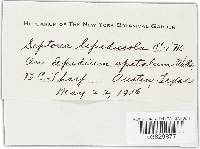 Herbarium of The New York Botanical Garden
Septoria lepidiicola E. & M.
On Lepidium apetalum Willd.
B.C. Tharp Austin, Texas
May 22, 1916